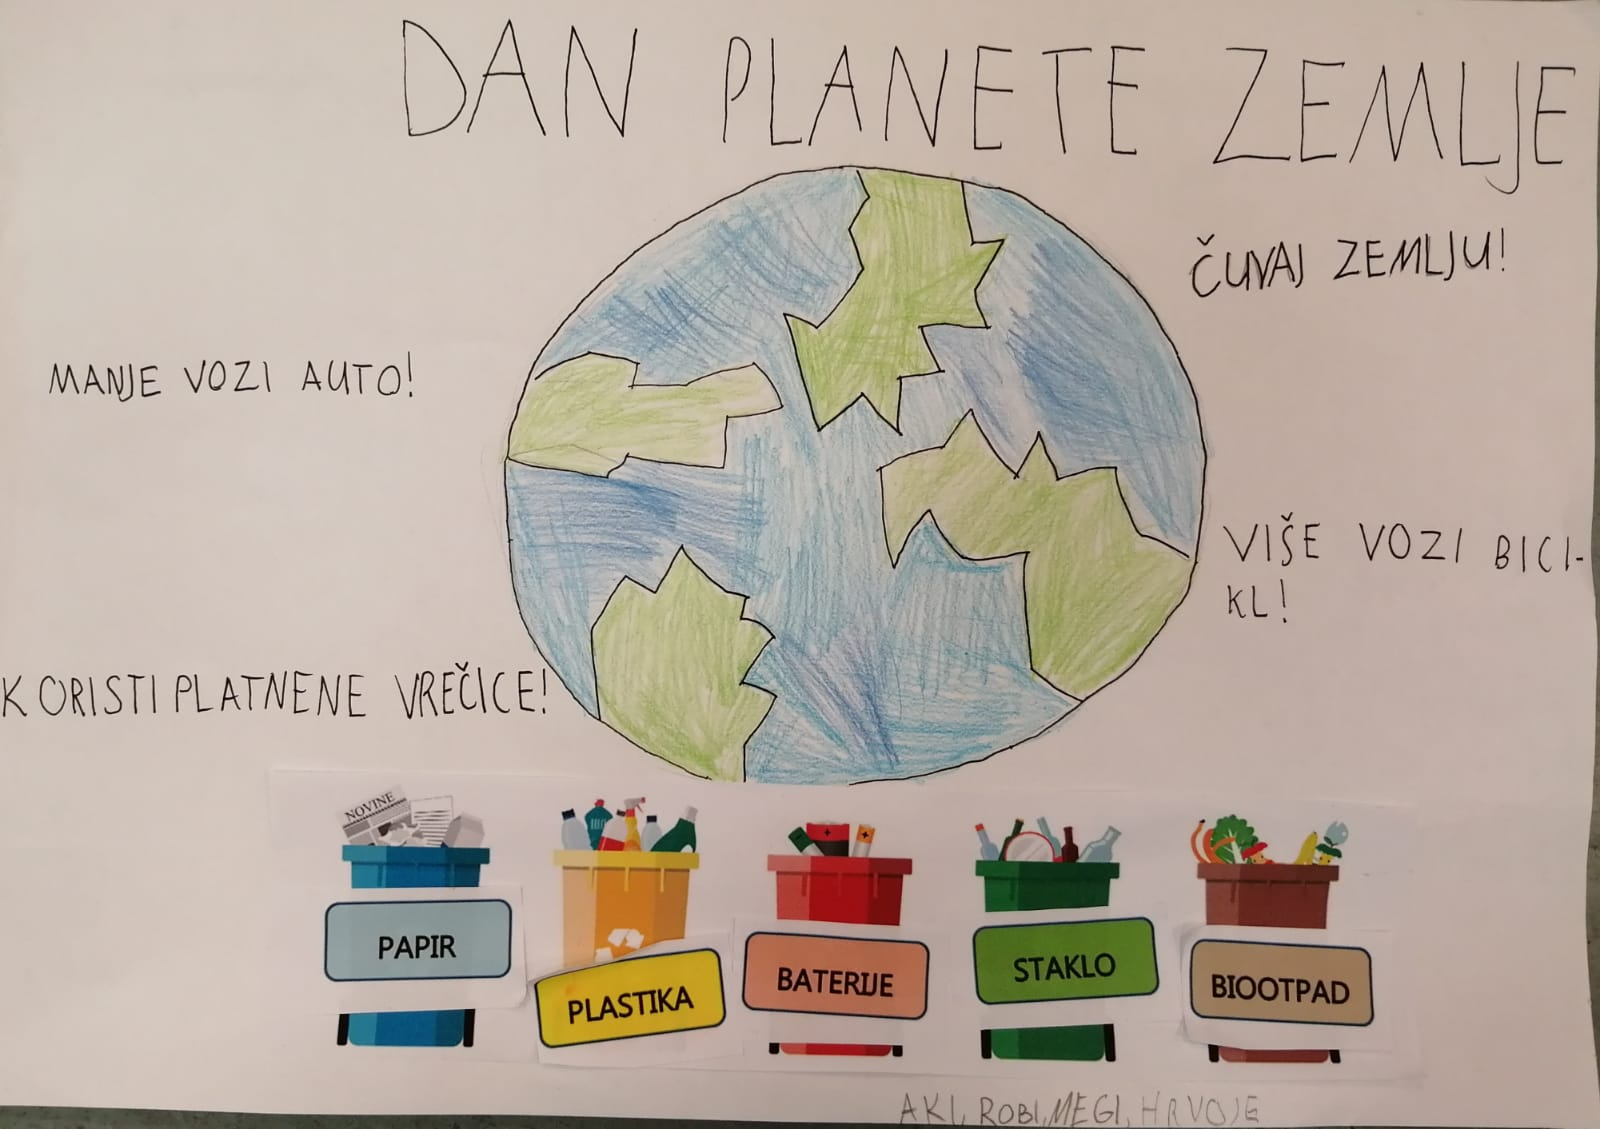 DAN PLANETE ZEMLJE
ČUVAJ ZEMLJU!
MANJE VOZI AUTO!
VIŠE VOZI BICI-
KL!
KORISTI PLATNENE VREČICE!
NOVINE
PAPIR
PLASTIKA
BATERIJE
STAKLO
BIOOTPAD
AKI, ROBI, MEGI, HRVOJE